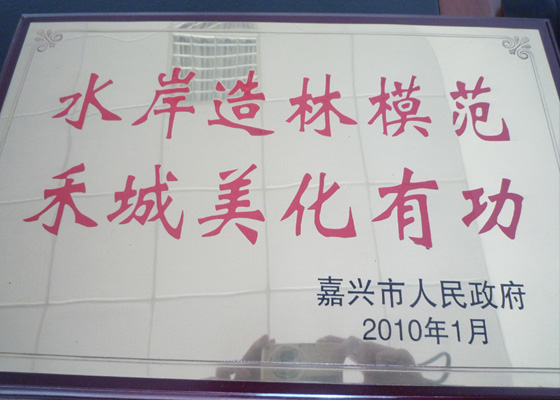 水岸造林模范
禾城美化有功
嘉兴市人民政府
2010年1月